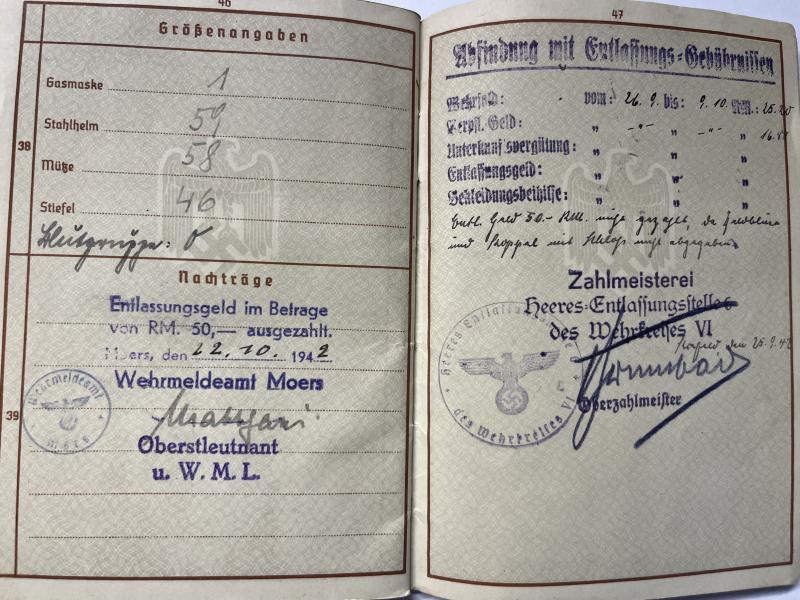 46
Größenangaben
38
Gasmaske 1
Stahlhelm 59
Mütze 58
Stiefel 46
Blutgruppe: O
Nachträge
Entlassungsgeld im Betrage
von RM. 50,— ausgezahlt.
Moers, den 22.10. 1942
39
Wehrmeldeamt Moers
Oberstleutnant
u. W. M. L.
Wehrmeldeamt
Moers
47
Abfindung mit Entlassungs-Gebührnissen
Wehrsold: vom: 26.9. bis: 9.10. RM.: 25.
Verpfl. Geld: " -"- " -"- " 16.
Unterkunftsvergütung: " " "
Entlassungsgeld: " " "
Bekleidungsbeihilfe: " " "
Entl. Geld 50.- RM. nicht gezahlt, da Feldbluse
und Koppel mit Schloß nicht abgegeben
Zahlmeisterei
Heeres-Entlassungsstelle
des Wehrkreises VI
den 25.9.42
Oberzahlmeister
Heeres Entlassungs
des Wehrkreises VI